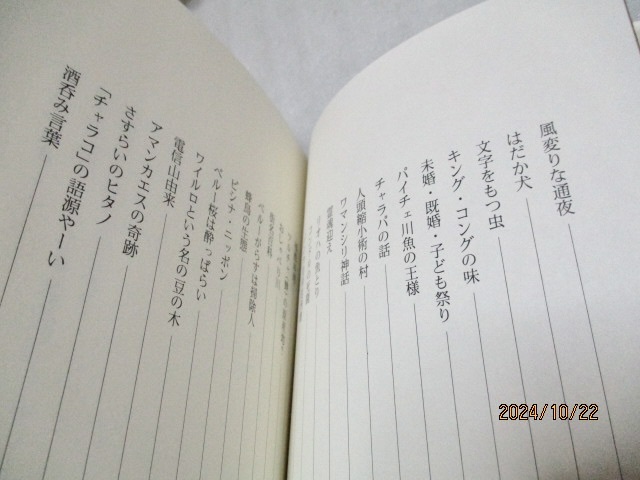 風変りな通夜
はだか犬
文字をもつ虫
キング・コングの味
未婚・既婚・子ども祭り
パイチェ川魚の王様
チャラパの話
人頭縮小術の村
ワマンシリ神話
霊魂迎え
ペルーがらすは掃除人
ビシナ・ニッポン
ペルー桜は酔っぱらい
ワイルロという名の豆の木
電信山由来
アマンカエスの奇跡
さすらいのヒタノ
「チャラコ」の語源やーい
酒呑み言葉
2024/10/22